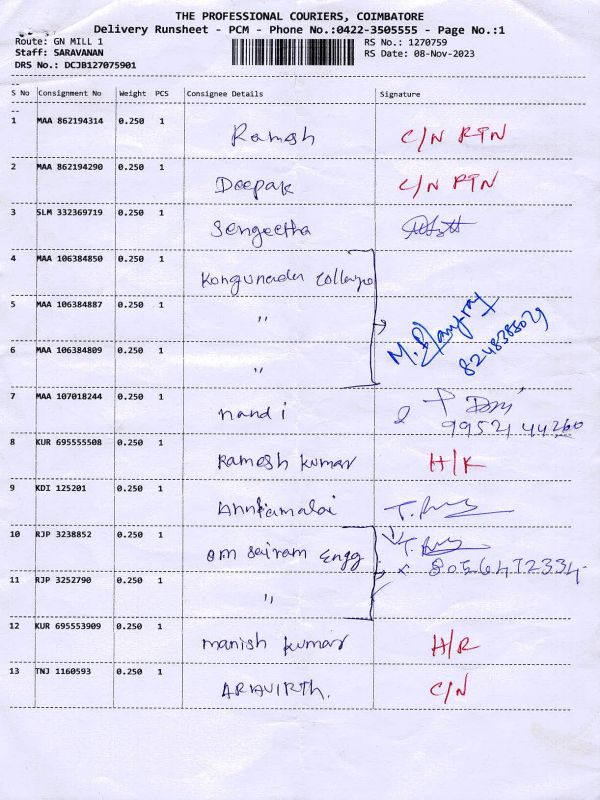 THE PROFESSIONAL COURIERS, COIMBATORE
Delivery Runsheet - PCM - Phone No.:0422-3505555 - Page No.:1
Route: GN MILL 1 RS No.: 1270759
Staff: SARAVANAN RS Date: 08-Nov-2023
DRS No.: DCJB127075901
S No Consignment No Weight PCS Consignee Details Signature
1 MAA 862194314 0.250 1 Ramesh C/N RTN
2 MAA 862194290 0.250 1 Deepak C/N RTN
3 SLM 332369719 0.250 1 Sengeetha
4 MAA 106384850 0.250 1 Kongunadu Collage
5 MAA 106384887 0.250 1 "
M.
8248385029
6 MAA 106384809 0.250 1 "
7 MAA 107018244 0.250 1 nandi
9952144260
8 KUR 695555508 0.250 1 Ramesh kumar H/K
9 KDI 125201 0.250 1 Annamalai T.
10 RJP 3238852 0.250 1 om sairam Engg T.
8056472334
11 RJP 3252790 0.250 1 "
12 KUR 695553909 0.250 1 manish kumar H/R
13 TNJ 1160593 0.250 1 ARAVIRTH. C/N